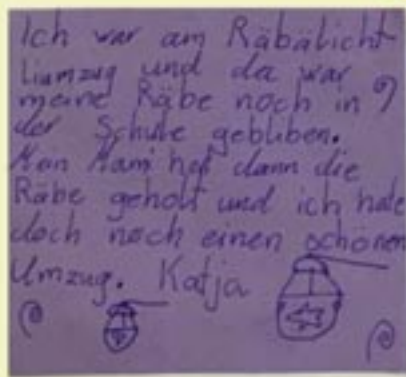 Ich war am Räbälicht
liumzug und da war
meine Räbe noch in
der Schule gebliben.
Man Mami hat dann die
Räbe geholt und ich hate
doch noch einen schönen
Umzug. Katja